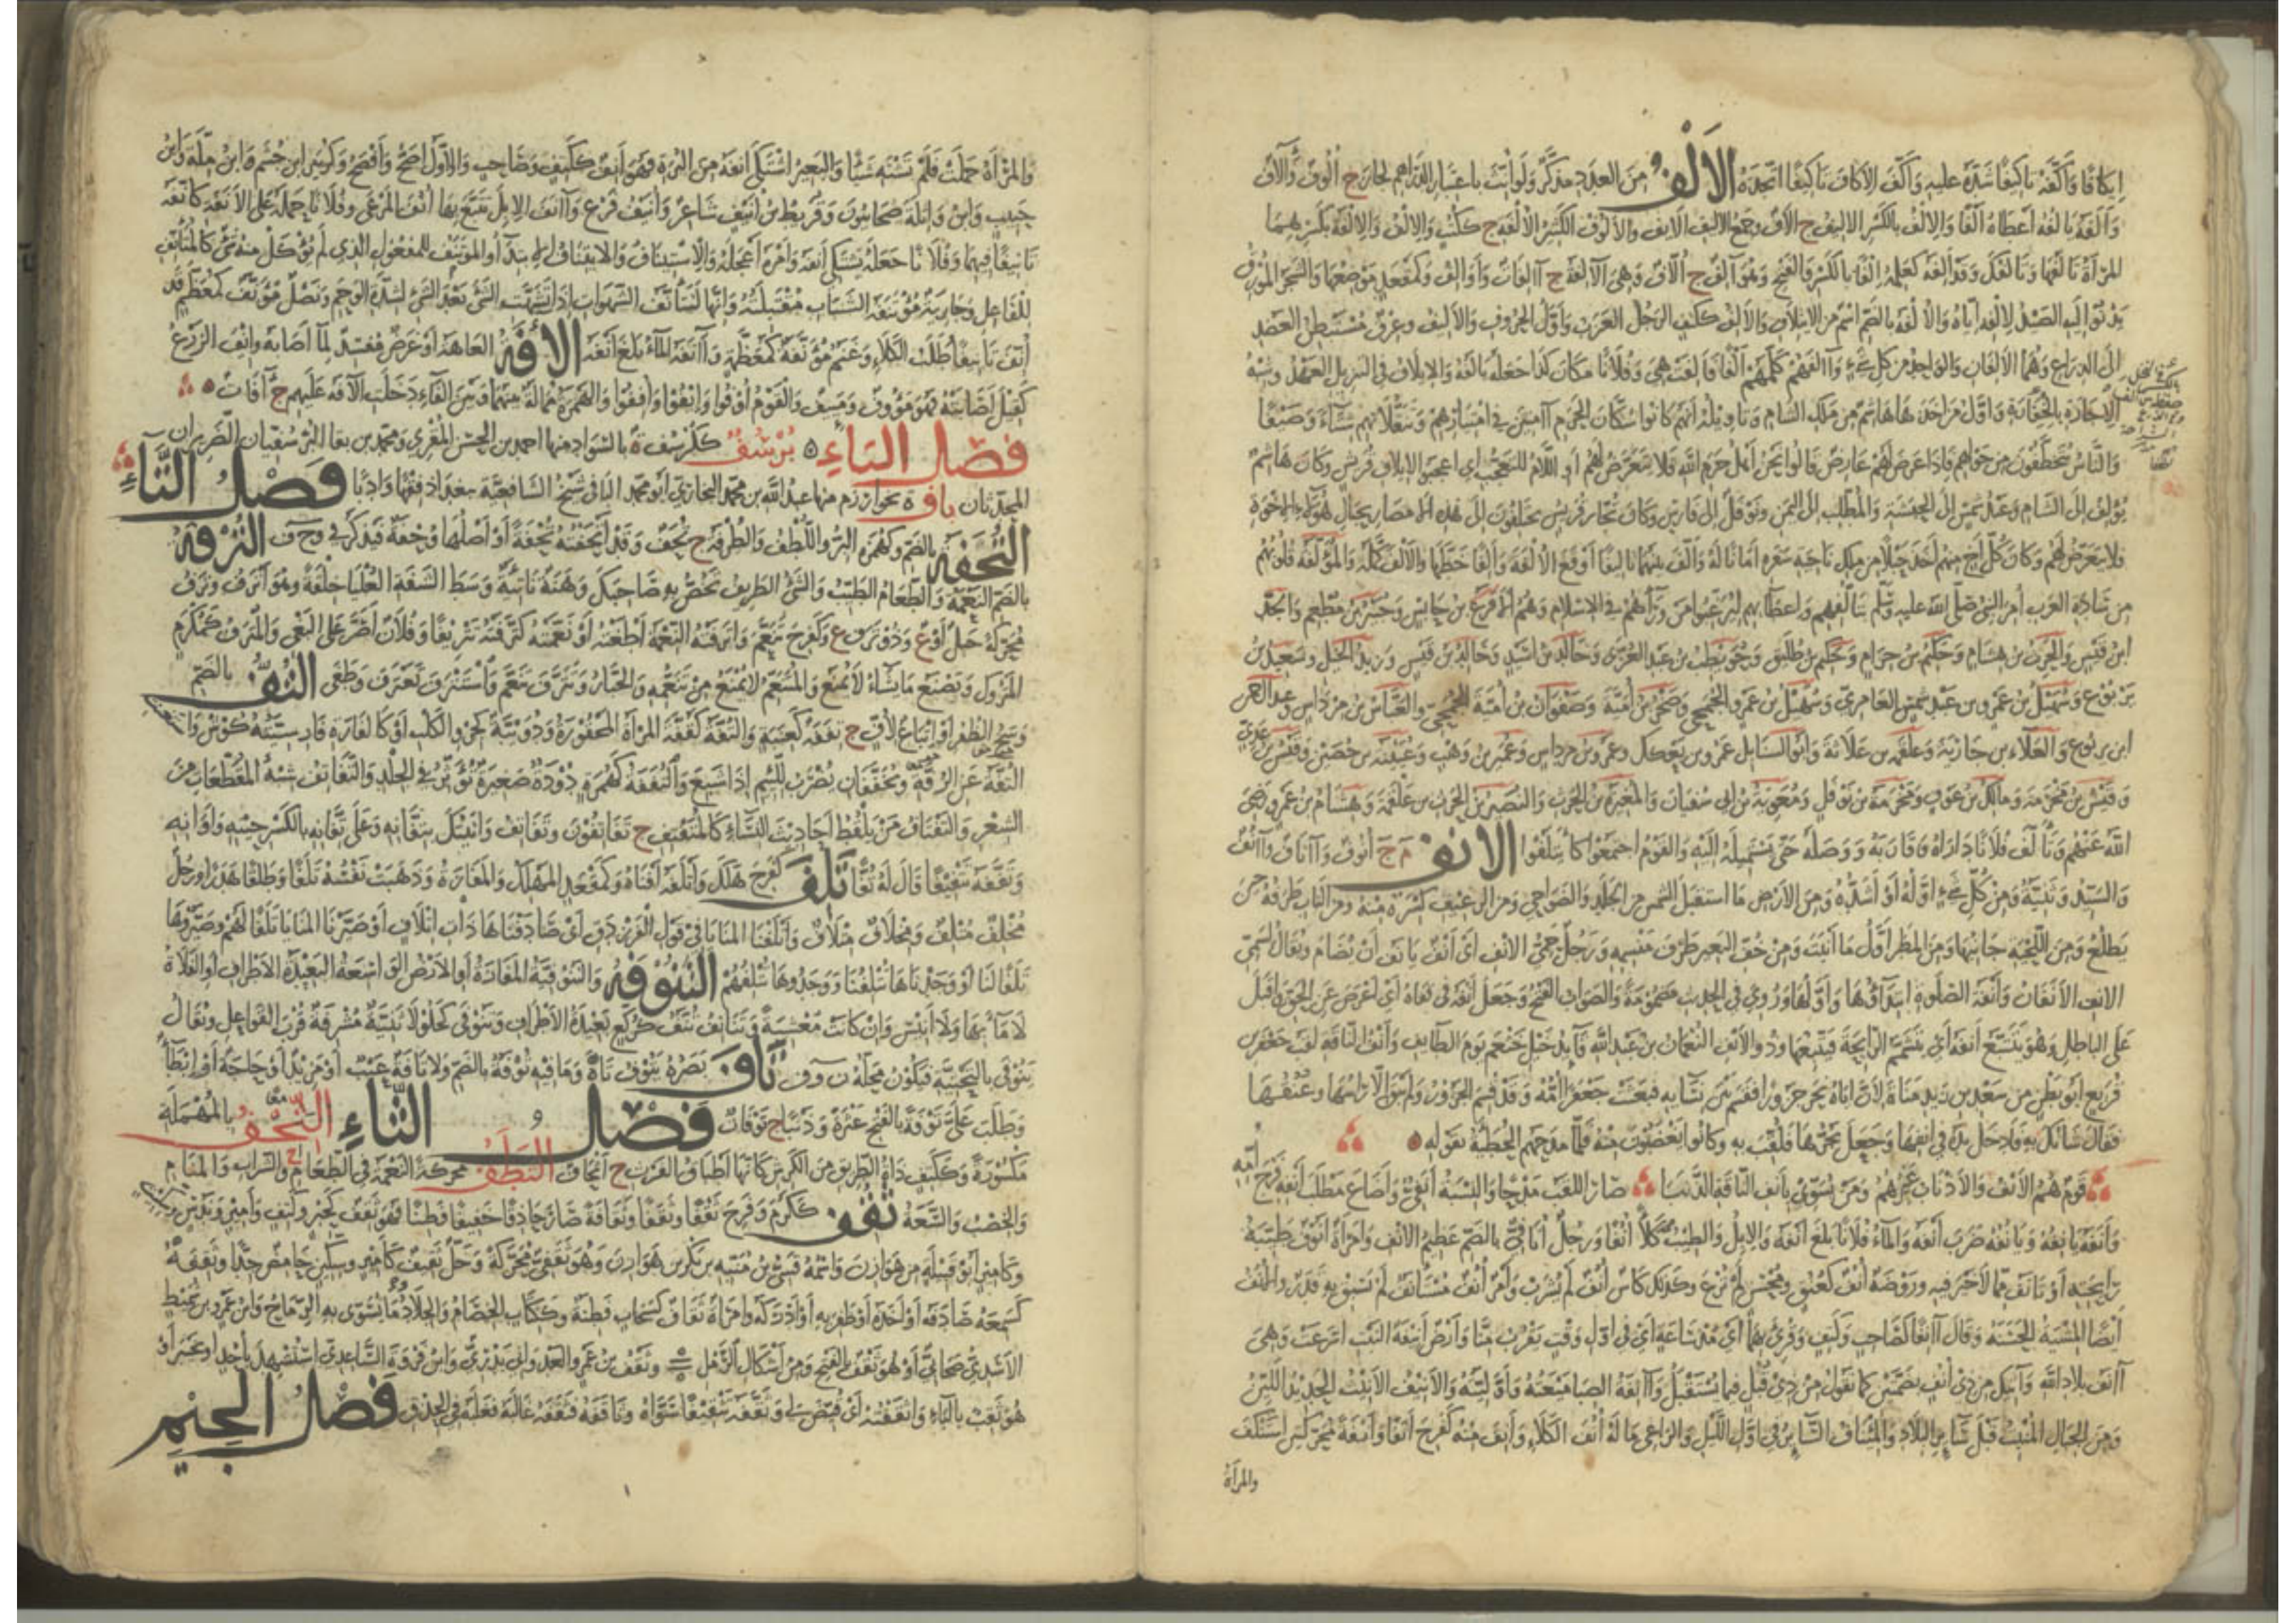 إيكافا وأكفه تأكيفا شده عليه وأكف الإكاف تأكيفا اتخذه الألف من العدد مذكر ولو أنث باعتبار الدراهم لجاز ج ألوف وآلاف
وألفه يألفه أعطاه ألفا والإلف بالكسر الأليف ج آلاف وجمع الأليف ألائف والألوف الكثير الألفة ج ككتب والإلف والإلفة بكسرهما
المرأة تألفها وتألفك وقد ألفه كعلمه إلفا بالكسر والفتح وهو آلف ج ألاف وهي آلفة ج آلفات وأوالف وكمقعد موضعها والشجر المورق
يدنو إليه الصيد لإلفه إياه والألفة بالضم اسم من الائتلاف والألف ككتف الرجل العزب وأول الحروف والأليف وعرق مستبطن العضد
إلى الذراع وهما الألفان والواحد من كل شيء وآلفهم كملهم ألفا فألفت هي وفلانا مكان كذا جعله يألفه والإيلاف في التنزيل العهد وشبه
الإجازة بالخفارة وأول من أخذها هاشم من ملك الشام وتأويله أنهم كانوا سكان الحرم آمنين في امتيارهم وتنقلاتهم شتاء وصيفا
والناس يتخطفون من حولهم فإذا عرض لهم عارض قالوا نحن أهل حرم الله فلا يتعرض لهم أو اللام للتعجب أي اعجبوا لإيلاف قريش وكان هاشم
يؤلف إلى الشام وعبد شمس إلى الحبشة والمطلب إلى اليمن ونوفل إلى فارس وكان تجار قريش يختلفون إلى هذه الأمصار بحبال هؤلاء الإخوة
فلا يتعرض لهم وكان كل أخ منهم أخذ حبلا من ملك ناحية سفره أمانا له وألف بينهما تأليفا أوقع الألفة وألفا خطها والألف كمله والمؤلفة قلوبهم
من سادة العرب أمر النبي صلى الله عليه وسلم بتألفهم وإعطائهم ليرغبوا من وراءهم في الإسلام وهم الأقرع بن حابس وجبير بن مطعم والجد
ابن قيس والحرث بن هشام وحكيم بن حزام وحكيم بن طليق وحويطب بن عبد العزى وخالد بن أسيد وخالد بن قيس وزيد الخيل وسعيد بن
يربوع وسهيل بن عمرو بن عبد شمس العامري وسهيل بن عمرو الجمحي وصخر بن أمية وصفوان بن أمية الجمحي والعباس بن مرداس وعبد الرحمن
ابن يربوع والعلاء بن حارثة وعلقمة بن علاثة وأبو السنابل عمرو بن بعكك وعمرو بن مرداس وعمير بن وهب وعيينة بن حصين وقيس بن عدي
وقيس بن مخرمة ومالك بن عوف ومخرمة بن نوفل ومعوية بن أبي سفيان والمغيرة بن الحرث والنضير بن الحرث بن علقمة وهشام بن عمرو رضي
الله عنهم وتألف فلانا داراه وقاربه ووصله حتى يستميله إليه والقوم اجتمعوا كائتلفوا الأنف م ج أنوف وآناف وآنف
والسيد وثنية ومن كل شيء أوله أو أشده ومن الأرض ما استقبل الشمس من الجلد والضواحي ومن الرغيف كسرة منه ومن الباب طرفه حين
يطلع ومن اللحية جانبها ومن المطر أول ما أنبت ومن خف البعير طرف منسمه ورجل حمي الأنف أي أنف يأنف أن يضام ويقال لسمي
الأنف الأنفان وأنفة الصلوة ابتداؤها وأولها وروي في الحديث مضمومة والصواب الفتح وجعل أنفه في قفاه أي أعرض عن الحق وأقبل
على الباطل وهو يتتبع أنفه أي يتشمم الرائحة فيتبعها وذو الأنف النعمان بن عبد الله قائد خيل خثعم يوم الطائف وأنف الناقة لقب جعفر بن
قريع أبو بطن من سعد بن زيد مناة لأن أباه نحر جزورا فقسم بين نسائه فبعثت جعفرا أمه وقد قسم الجزور ولم يبق إلا رأسها وعنقها
فقال شأنك به فأدخل يده في أنفها وجعل يجرها فلقب به وكانوا يغضبون منه فلما مدحهم الحطيئة بقوله
قوم هم الأنف والأذناب غيرهم ومن يسوي بأنف الناقة الذنبا صار اللقب مدحا والنسبة أنفي وأضاع مطلب أنفه فرج أمه
وأنفه يأنفه ويأنفه ضرب أنفه والماء فلانا بلغ أنفه والإبل وطئت كلأ أنفا ورجل أنافي بالضم عظيم الأنف وامرأة أنوف طيبة
رائحته أو تأنف مما لا خير فيه وروضة أنف كعنق ومحسن لم ترع وكذلك كأس أنف لم يشرب وأمر أنف مستأنف لم يسبق به قدر والأنف
أيضا المشية الحسنة وقال آنفا كصاحب وكتف وقرئ بهما أي مذ ساعة أي في أول وقت يقرب منا وأرض أنيفة النبت أسرعت وهي
آنف بلاد الله وآتيك من ذي أنف بضمتين كما تقول من ذي قبل فيما يستقبل وآنفة الصبا ميعته وأوليته والأنيف الأنيث الحديد اللين
ومن الجبال المنبت قبل سائر البلاد والمئناف السائر في أول الليل والراعي ماله أنف الكلإ وأنف منه كفرح أنفا وأنفة محركتين استنكف
والمرأة
والمرأة حملت فلم تشته شيئا والبعير اشتكى أنفه من البرة فهو أنف ككتف وصاحب والأول أصح وأفصح وكزبير ابن جشم وابن ملة وابن
حبيب وابن واثلة صحابيون وقريط بن أنيف شاعر وأنيف فرع وآنف الإبل تتبع بها أنف المرعى وفلانا حمله على الأنفة كأنفه
تأنيفا فيهما وفلانا جعله يشتكي أنفه وأمره أعجله والاستيناف والايتناف الابتداء والمؤتنف للمفعول الذي لم يؤكل منه شيء كالمتأنف
للفاعل وجارية مؤتنفة الشباب مقتبلته وإنها لتتأنف الشهوات إذا تشهت الشيء بعد الشيء لشدة الوحم ونصل مؤنف كمعظم قد
أنف تأنيفا طلب الكلأ وغنم مؤنفة كمعظمة وآنفه الماء بلغ أنفه الآفة العاهة أو عرض مفسد لما أصابه وإيف الزرع
كقيل أصابته فهو مؤوف ومئيف والقوم أوفوا وإيفوا وأفوا والهمزة ممالة بينها وبين الفاء دخلت الآفة عليهم ج آفات
فصل الباء برسف كقرشف ة بالسواد منها أحمد بن الحسن المقرئ ومحمد بن بقا البرسفيان الضريران
المحدثان باف ة بخوارزم منها عبد الله بن محمد البخاري أبو محمد البافي شيخ الشافعية ببغداد فقها وأدبا فصل التاء
التحفة بالضم وكهمزة البر واللطف والطرفة ج تحف وقد أتحفته تحفة أو أصلها وحفة فيذكر في وحف الترفة
بالضم النعمة والطعام الطيب والشيء الطريف تخص به صاحبك وهنة ناتئة وسط الشفة العليا خلقة وهو أترف وترف
محركة جبل أو ع وذو ترف ع وكفرح تنعم وأترفته النعمة أطغته أو نعمته كترفته تتريفا وفلان أصر على البغي والمترف كمكرم
المتروك ويصنع ما يشاء لا يمنع والمتنعم لا يمنع من تنعمه والجبار وتترف تنعم واستترف تغترف وطغى التف بالضم
وسخ الظفر أو إتباع لأف ج تففة كعنبة والتفة كقفة المرأة المحقورة ودويبة كجرو الكلب أو كالفارة
التفة عن الرفة ويخففان يضرب للئيم إذا شبع والتففة كهمزة دودة صغيرة تؤثر في الجلد والتفاتف شبه المقطعات من
الشعر والتفتاف من يلقط أحاديث النساء كالمتفتف ج تفتافون وتفاتف وأتيتك بتفانه وعلى تفانه بالكسر حينه وأوانه
وتففه تتفيفا قال له تفا تلف كفرح هلك وأتلفه أفناه وكمقعد المهلك والمفازة وذهبت نفسه تلفا وطلفا هدرا ورجل
مخلف متلف ومخلاف متلاف وأتلفنا المنايا في قول الفرزدق أي صادفناها ذات إتلاف أو صيرنا المنايا تلفا لهم وصيروها
تلفا لنا أو وجدناها تتلفنا ووجدوها تتلفهم التنوفة والتنوفية المفازة أو الأرض الواسعة البعيدة الأطراف أو الفلاة
لا ماء بها ولا أنيس وإن كانت معشبة وتنائف تنف كركع بعيدة الأطراف وتنوفى كجلولا ثنية مشرفة قرب القواعل ويقال
ينوفى بالتحتية فيكون محله ن و ف تاف بصره يتوف تاه وما فيه توفة بالضم ولا تافة عيب أو مزيد أو حاجة أو إبطاء
وطلب على توفة بالفتح عثرة وذنبا ج توفات فصل الثاء الثحف بالمهملة
مكسورة وككتف ذات الطرائق من الكرش كأنها أطباق الفرث ج أثحاف الثطف محركة النعمة في الطعام والشراب والمنام
والخصب والسعة ثقف ككرم وفرح ثقفا وثقفا وثقافة صار حاذقا خفيفا فطنا فهو ثقف كحبر وكتف وأمير وندس
وكأمير أبو قبيلة من هوازن واسمه قسي بن منبه بن بكر بن هوازن وهو ثقفي محركة وخل ثقيف كأمير وسكين حامض جدا وثقفه
كسمعه صادفه أو أخذه أو ظفر به أو أدركه وامرأة ثقاف كسحاب فطنة وككتاب الخصام والجلاد وما تسوى به الرماح وابن عمرو بن شميط
الأسدي صحابي أو هو ثقف بالفتح ومن أشكال الرمل وثقف بن عمرو العدواني بدري وابن فروة الساعدي استشهد بأحد أو بخيبر أو
هو ثقب بالباء وأثقفته أي قيض لي وثقفه تثقيفا سواه وثاقفه فثقفه غالبه فغلبه في الحذق فصل الجيم